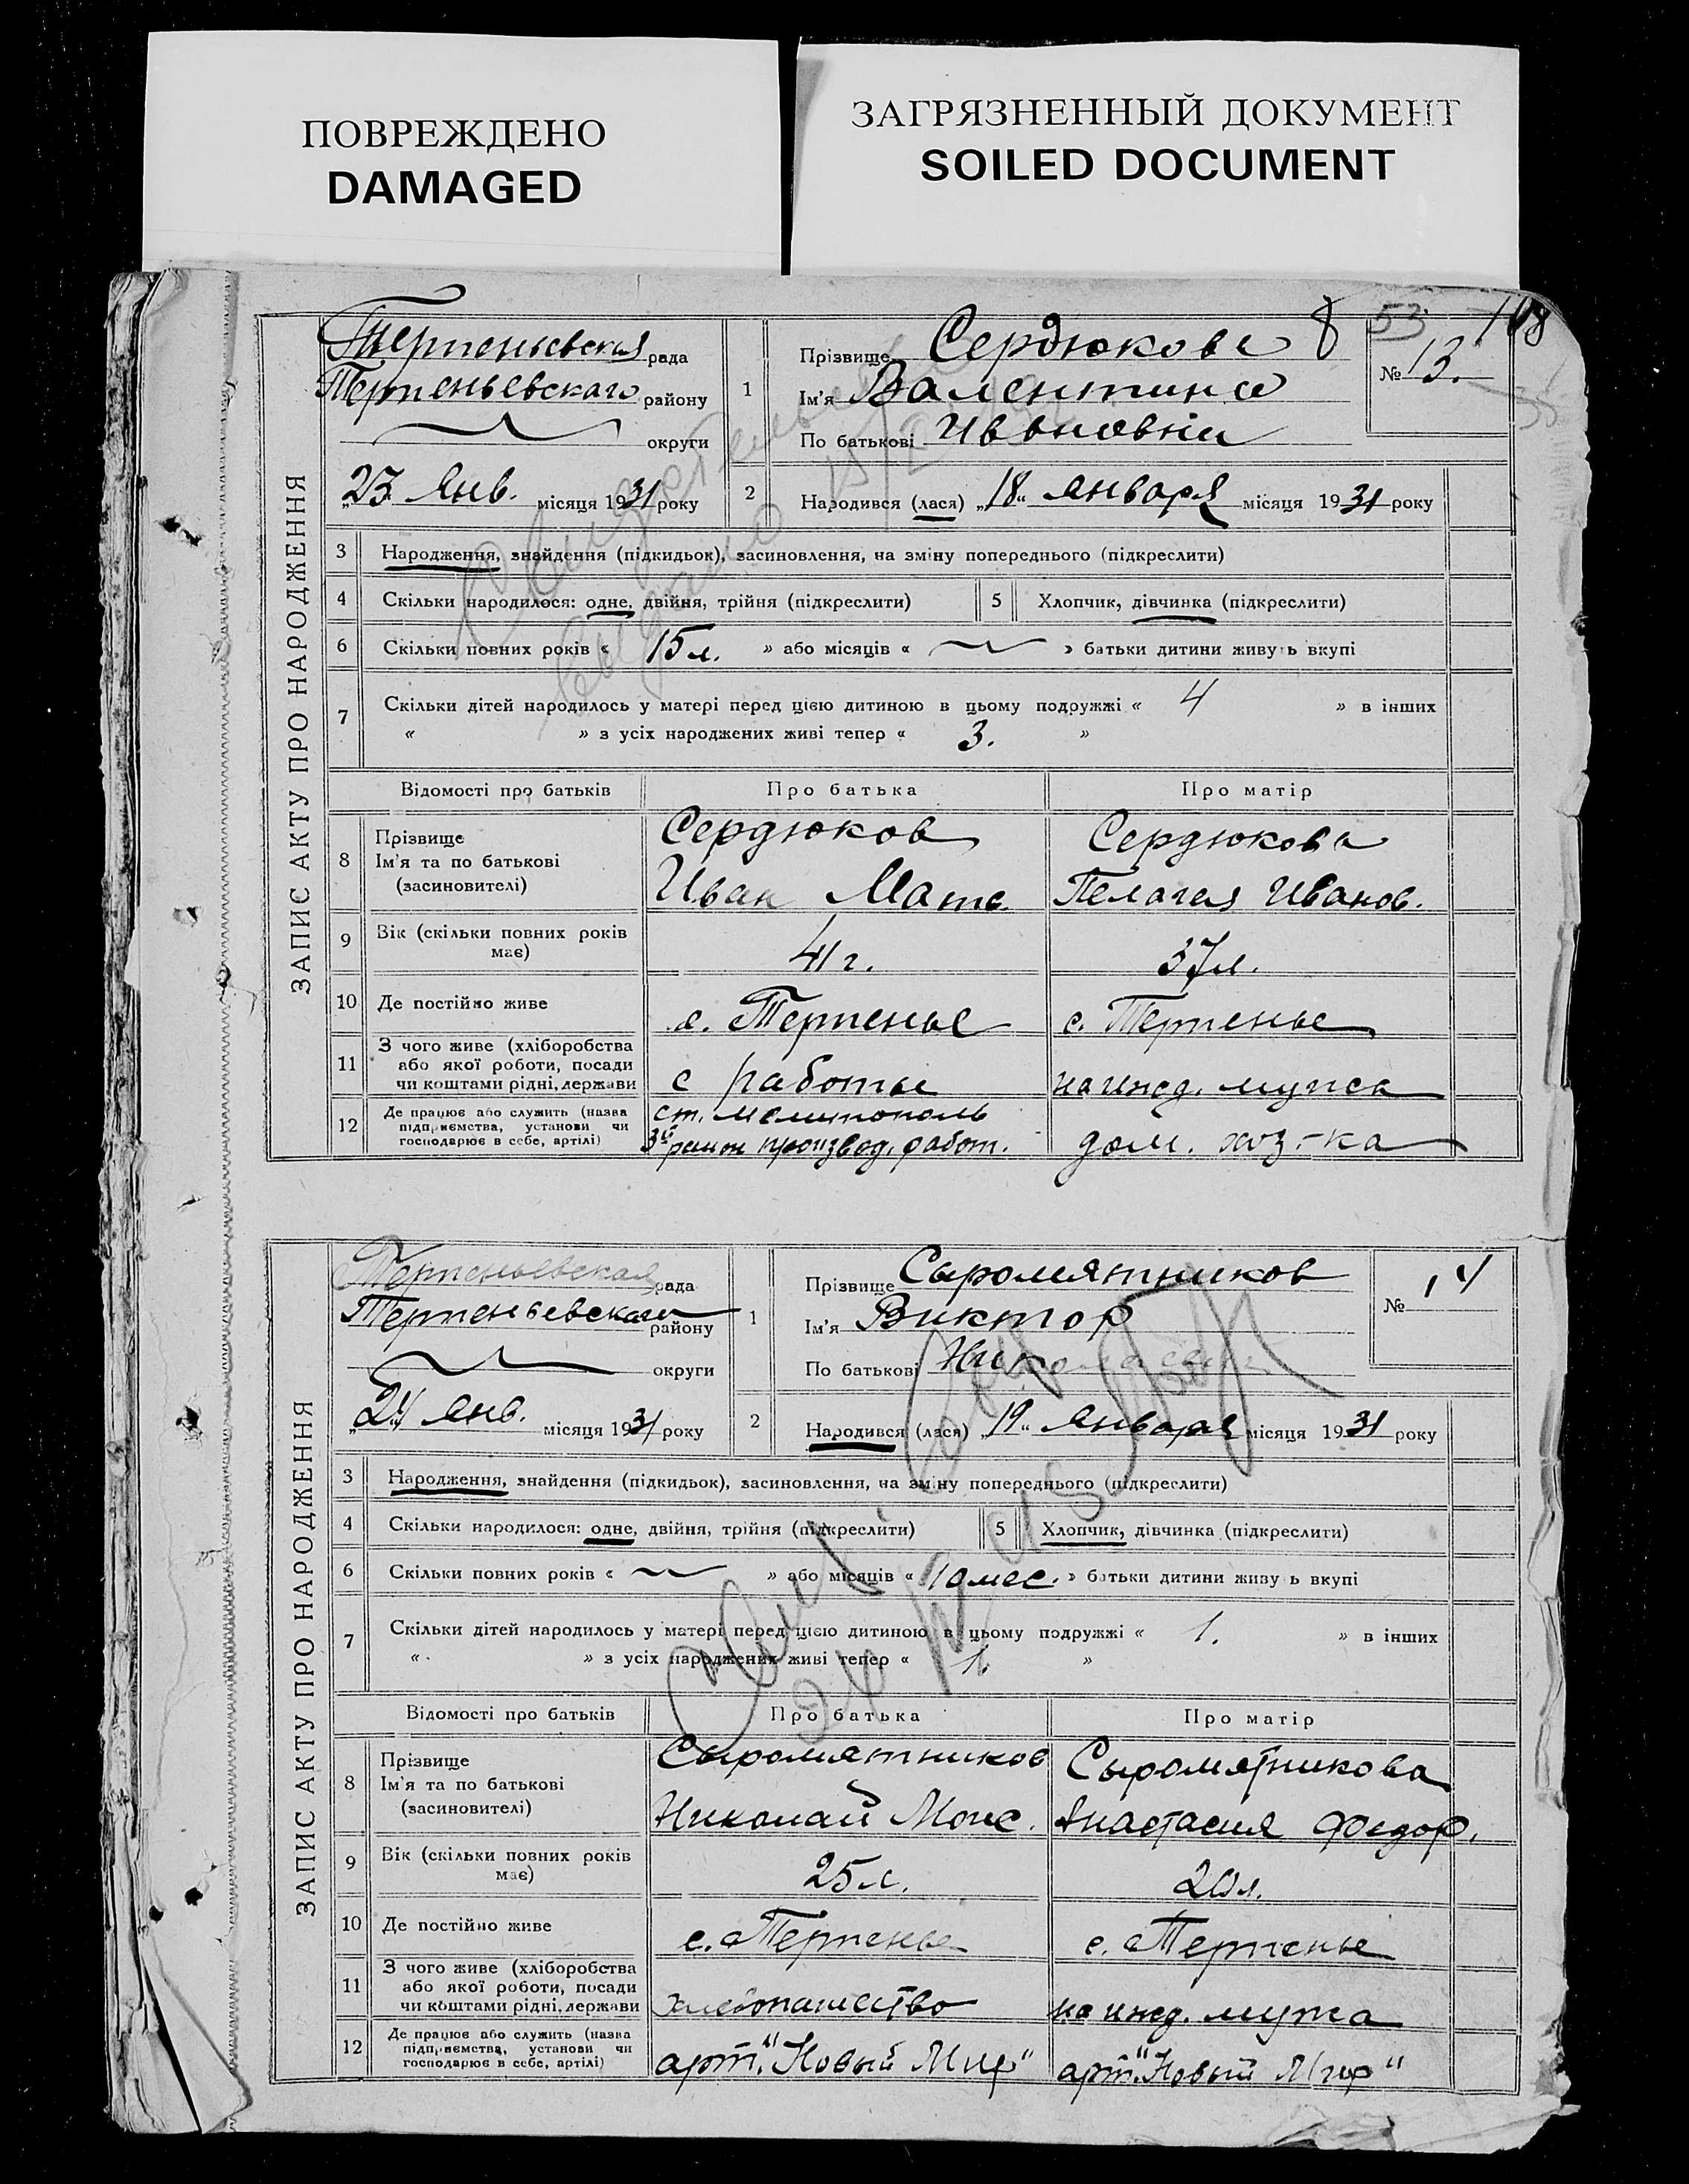 ПОВРЕЖДЕНО
DAMAGED
ЗАГРЯЗНЕННЫЙ ДОКУМЕНТ
SOILED DOCUMENT
53 108
ЗАПИС АКТУ ПРО НАРОДЖЕННЯ
Терпеньевская рада
Терпеньевскаго району
округи
„23 Янв. місяця 1931 року
1 Прізвище Сердюкова
Ім'я Валентина
По батькові Ивановна
№ 13.
2 Народився (лася) „18" января місяця 1931 року
3 Народження, знайдення (підкидьок), засиновлення, на зміну попереднього (підкреслити)
4 Скільки народилося: одне, двійня, трійня (підкреслити) 5 Хлопчик, дівчинка (підкреслити)
6 Скільки повних років « 15 л. » або місяців « » батьки дитини живуть вкупі
7 Скільки дітей народилось у матері перед цією дитиною в цьому подружжі « 4 » в інших
« » з усіх народжених живі тепер « 3. »
Відомості про батьків Про батька Про матір
8 Прізвище Ім'я та по батькові (засиновителі)
Сердюков Сердюкова
Иван Матв. Пелагея Иванов.
9 Вік (скільки повних років має) 41 г. 37 л.
10 Де постійно живе с. Терпенье с. Терпенье
11 З чого живе (хліборобства або якої роботи, посади чи коштами рідні, держави с работы на ижд. мужа
12 Де працює або служить (назва підприємства, установи чи господарює в себе, артілі)
ст. Мелитополь
3й район производ. работ. дом. хоз-ка
ЗАПИС АКТУ ПРО НАРОДЖЕННЯ
Терпеньевская рада
Терпеньевскаго району
округи
„24 Янв. місяця 1931 року
1 Прізвище Сыромятников
Ім'я Виктор
По батькові Николаевич
№ 14
2 Народився (лася) „19" января місяця 1931 року
3 Народження, знайдення (підкидьок), засиновлення, на зміну попереднього (підкреслити)
4 Скільки народилося: одне, двійня, трійня (підкреслити) 5 Хлопчик, дівчинка (підкреслити)
6 Скільки повних років « » або місяців « 10 мес. » батьки дитини живуть вкупі
7 Скільки дітей народилось у матері перед цією дитиною в цьому подружжі « 1. » в інших
« » з усіх народжених живі тепер « 1. »
Відомості про батьків Про батька Про матір
8 Прізвище Ім'я та по батькові (засиновителі)
Сыромятников Сыромятникова
Николай Моис. Анастасия Федор.
9 Вік (скільки повних років має) 25 л. 20 л.
10 Де постійно живе с. Терпенье с. Терпенье
11 З чого живе (хліборобства або якої роботи, посади чи коштами рідні, держави хлебопашество на ижд. мужа
12 Де працює або служить (назва підприємства, установи чи господарює в себе, артілі)
арт. "Новый Мир" арт. "Новый Мир"